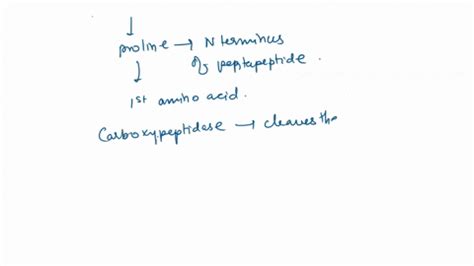 proline → N terminus
of peptapeptide.
1st amino acid.
Carboxypeptidase → cleaves the